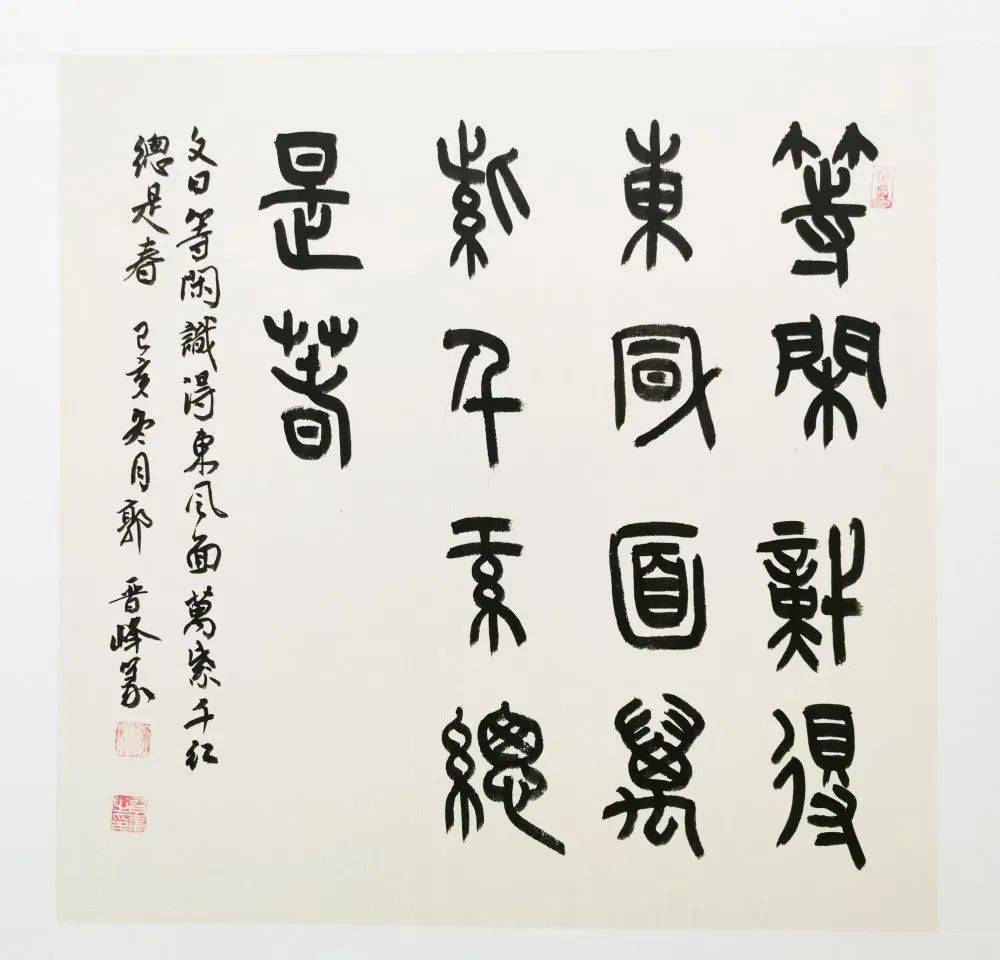 等閑識得
東風面萬
紫千紅總
是春
文曰等閑識得東風面萬紫千紅
總是春 己亥冬月郭晋峰篆